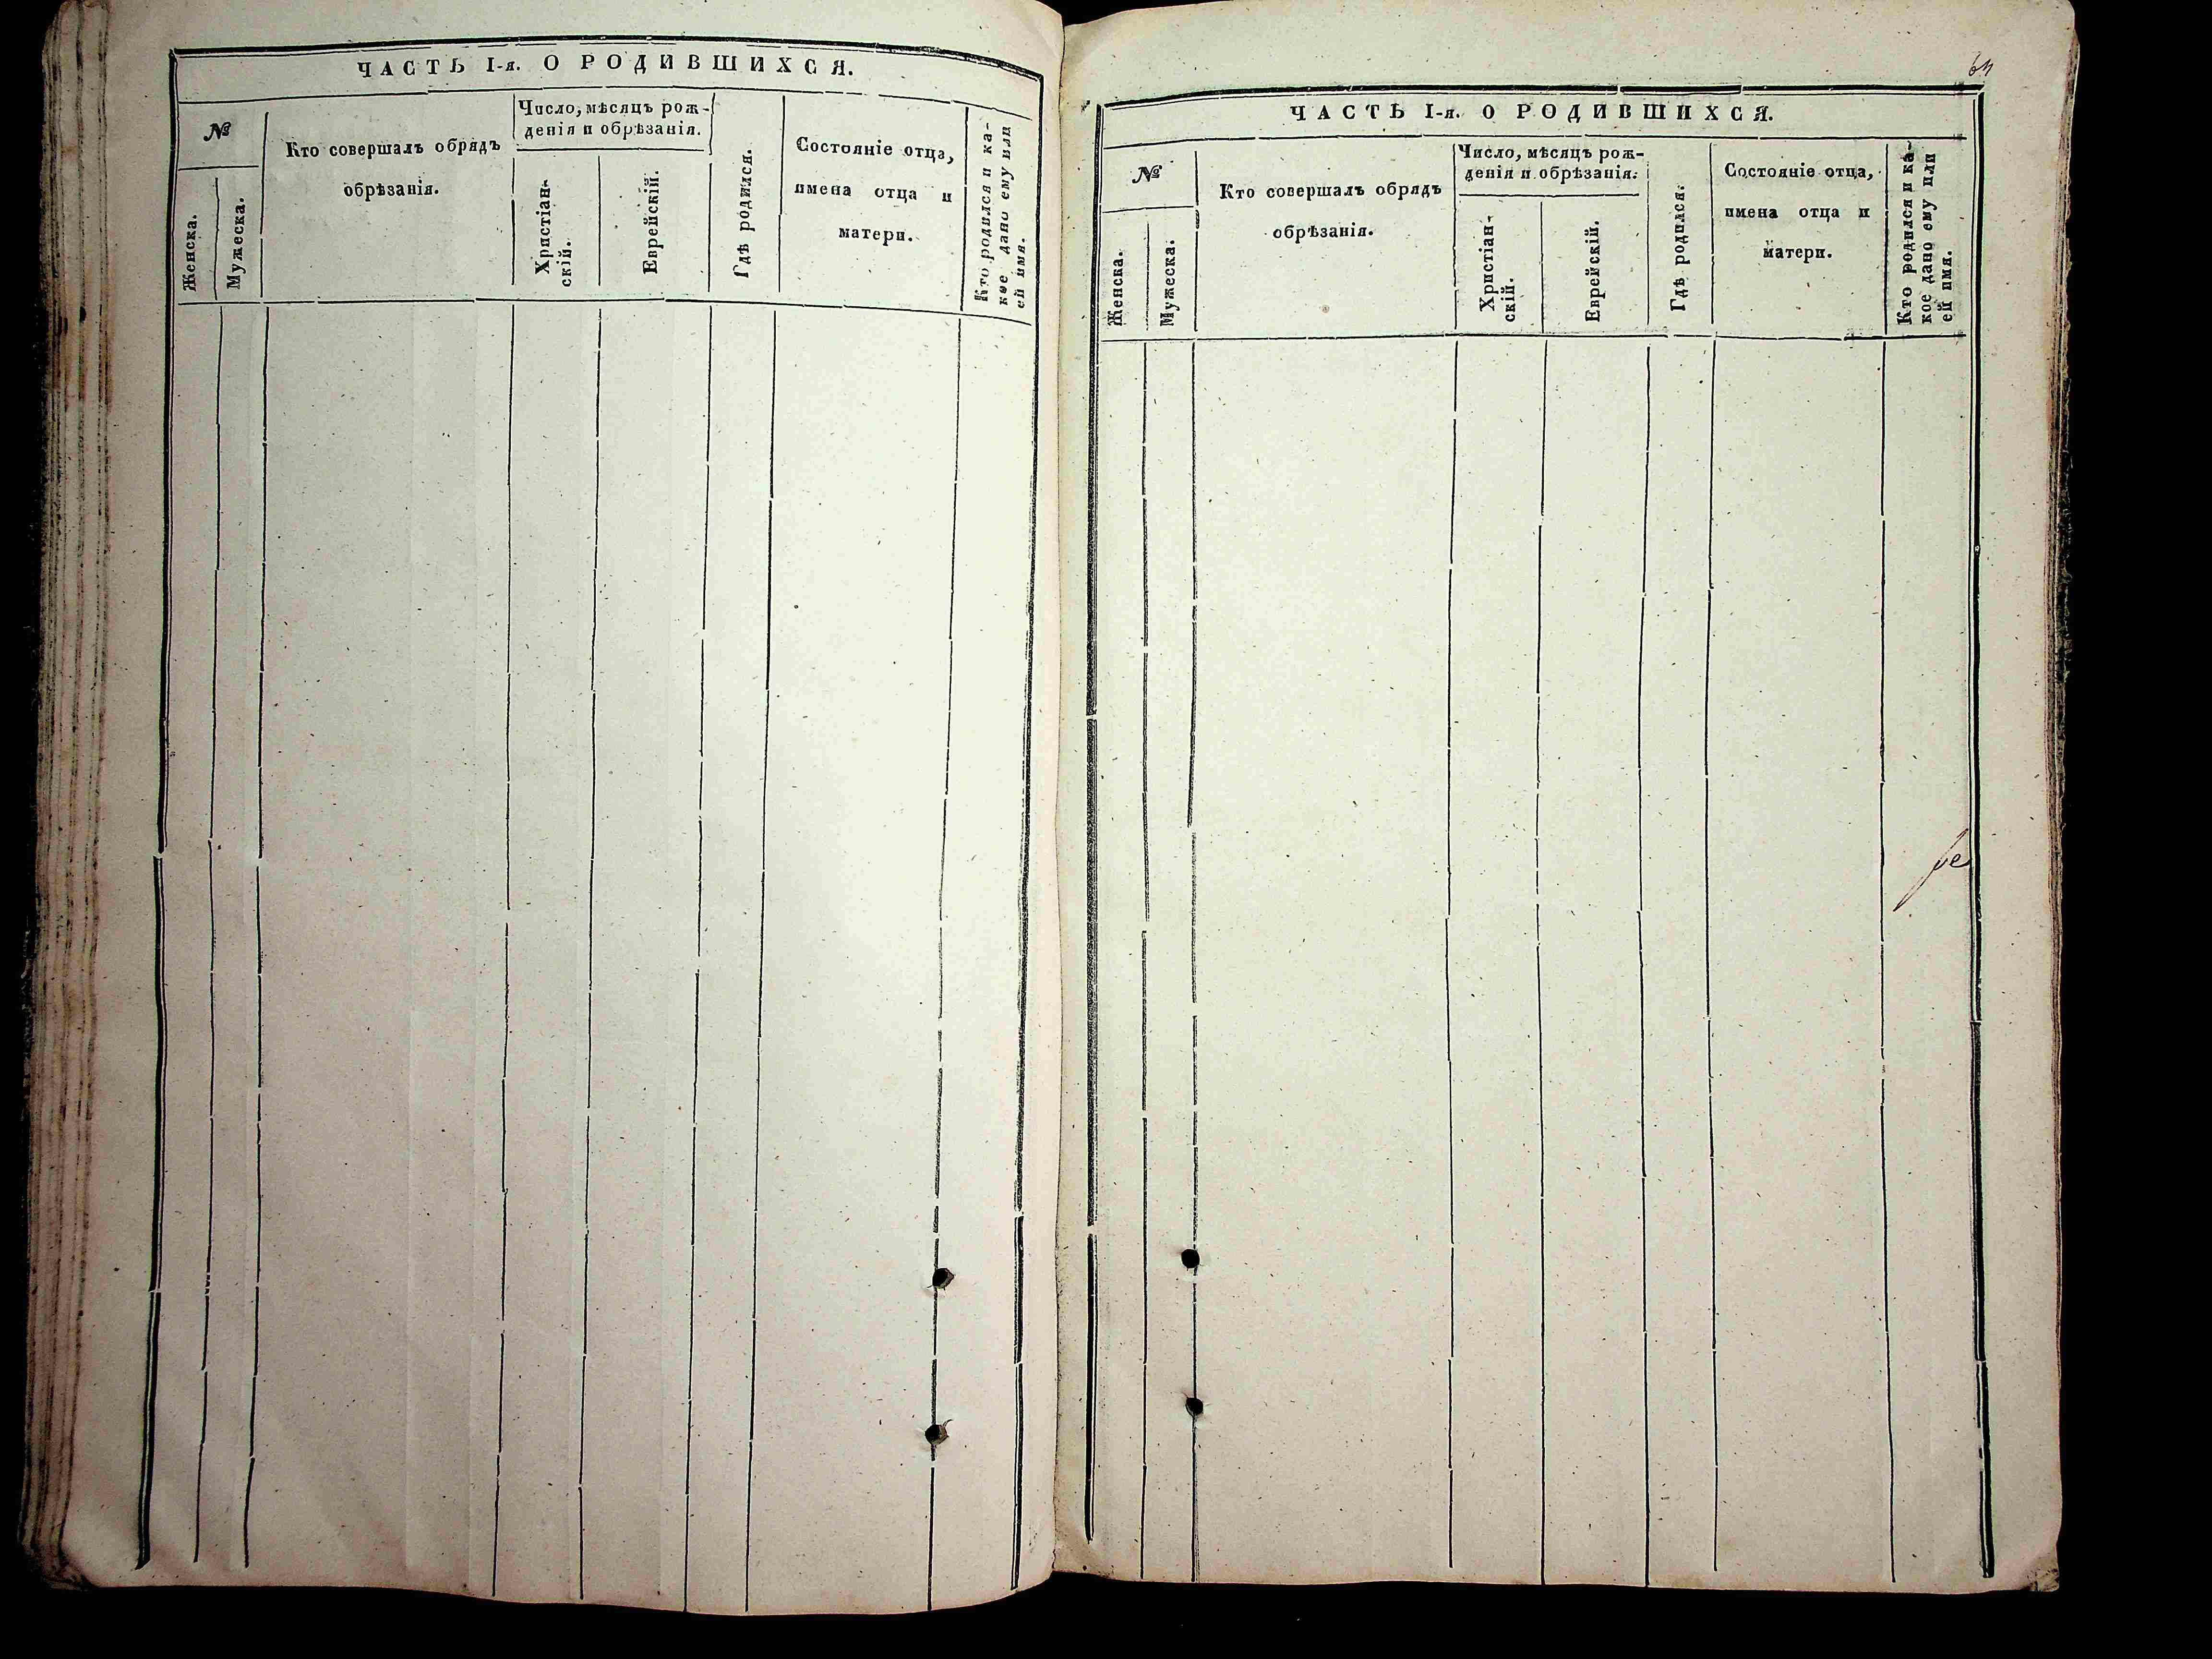 ЧАСТЬ I-я. О РОДИВШИХСЯ.
№
Женска.
Мужеска.
Кто совершалъ обрядъ
обрѣзанія.
Число, мѣсяцъ рож-
денія и обрѣзанія.
Христіан-
скій.
Еврейскій.
Гдѣ родился.
Состояніе отца,
имена отца и
матери.
Кто родился и ка-
кое дано ему или
ей имя.
64
ЧАСТЬ I-я. О РОДИВШИХСЯ.
№
Женска.
Мужеска.
Кто совершалъ обрядъ
обрѣзанія.
Число, мѣсяцъ рож-
денія и обрѣзанія.
Христіан-
скій.
Еврейскій.
Гдѣ родился.
Состояніе отца,
имена отца и
матери.
Кто родился и ка-
кое дано ему или
ей имя.